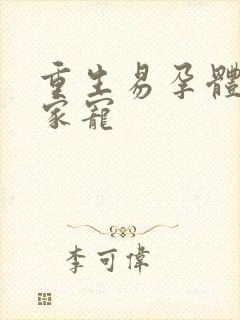 重生易孕體
家寵
李可偉